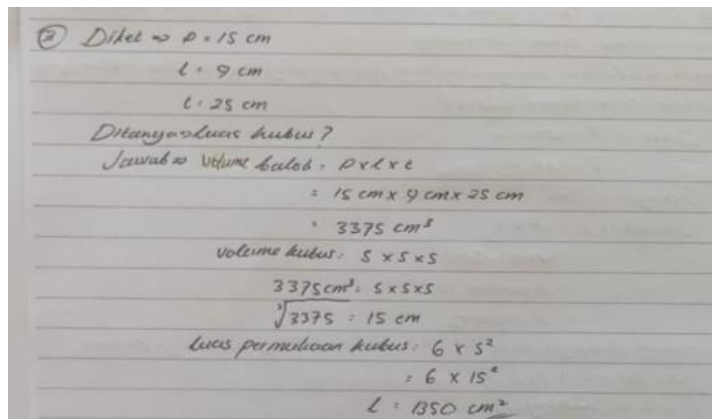 ② Diket => p = 15 cm
l = 9 cm
t = 25 cm
Ditanya => luas kubus ?
Jawab => Volume balok = p x l x t
= 15 cm x 9 cm x 25 cm
= 3375 cm³
volume kubus = s x s x s
3375 cm³ = s x s x s
³√3375 = 15 cm
luas permukaan kubus = 6 x s²
= 6 x 15²
L = 1350 cm²